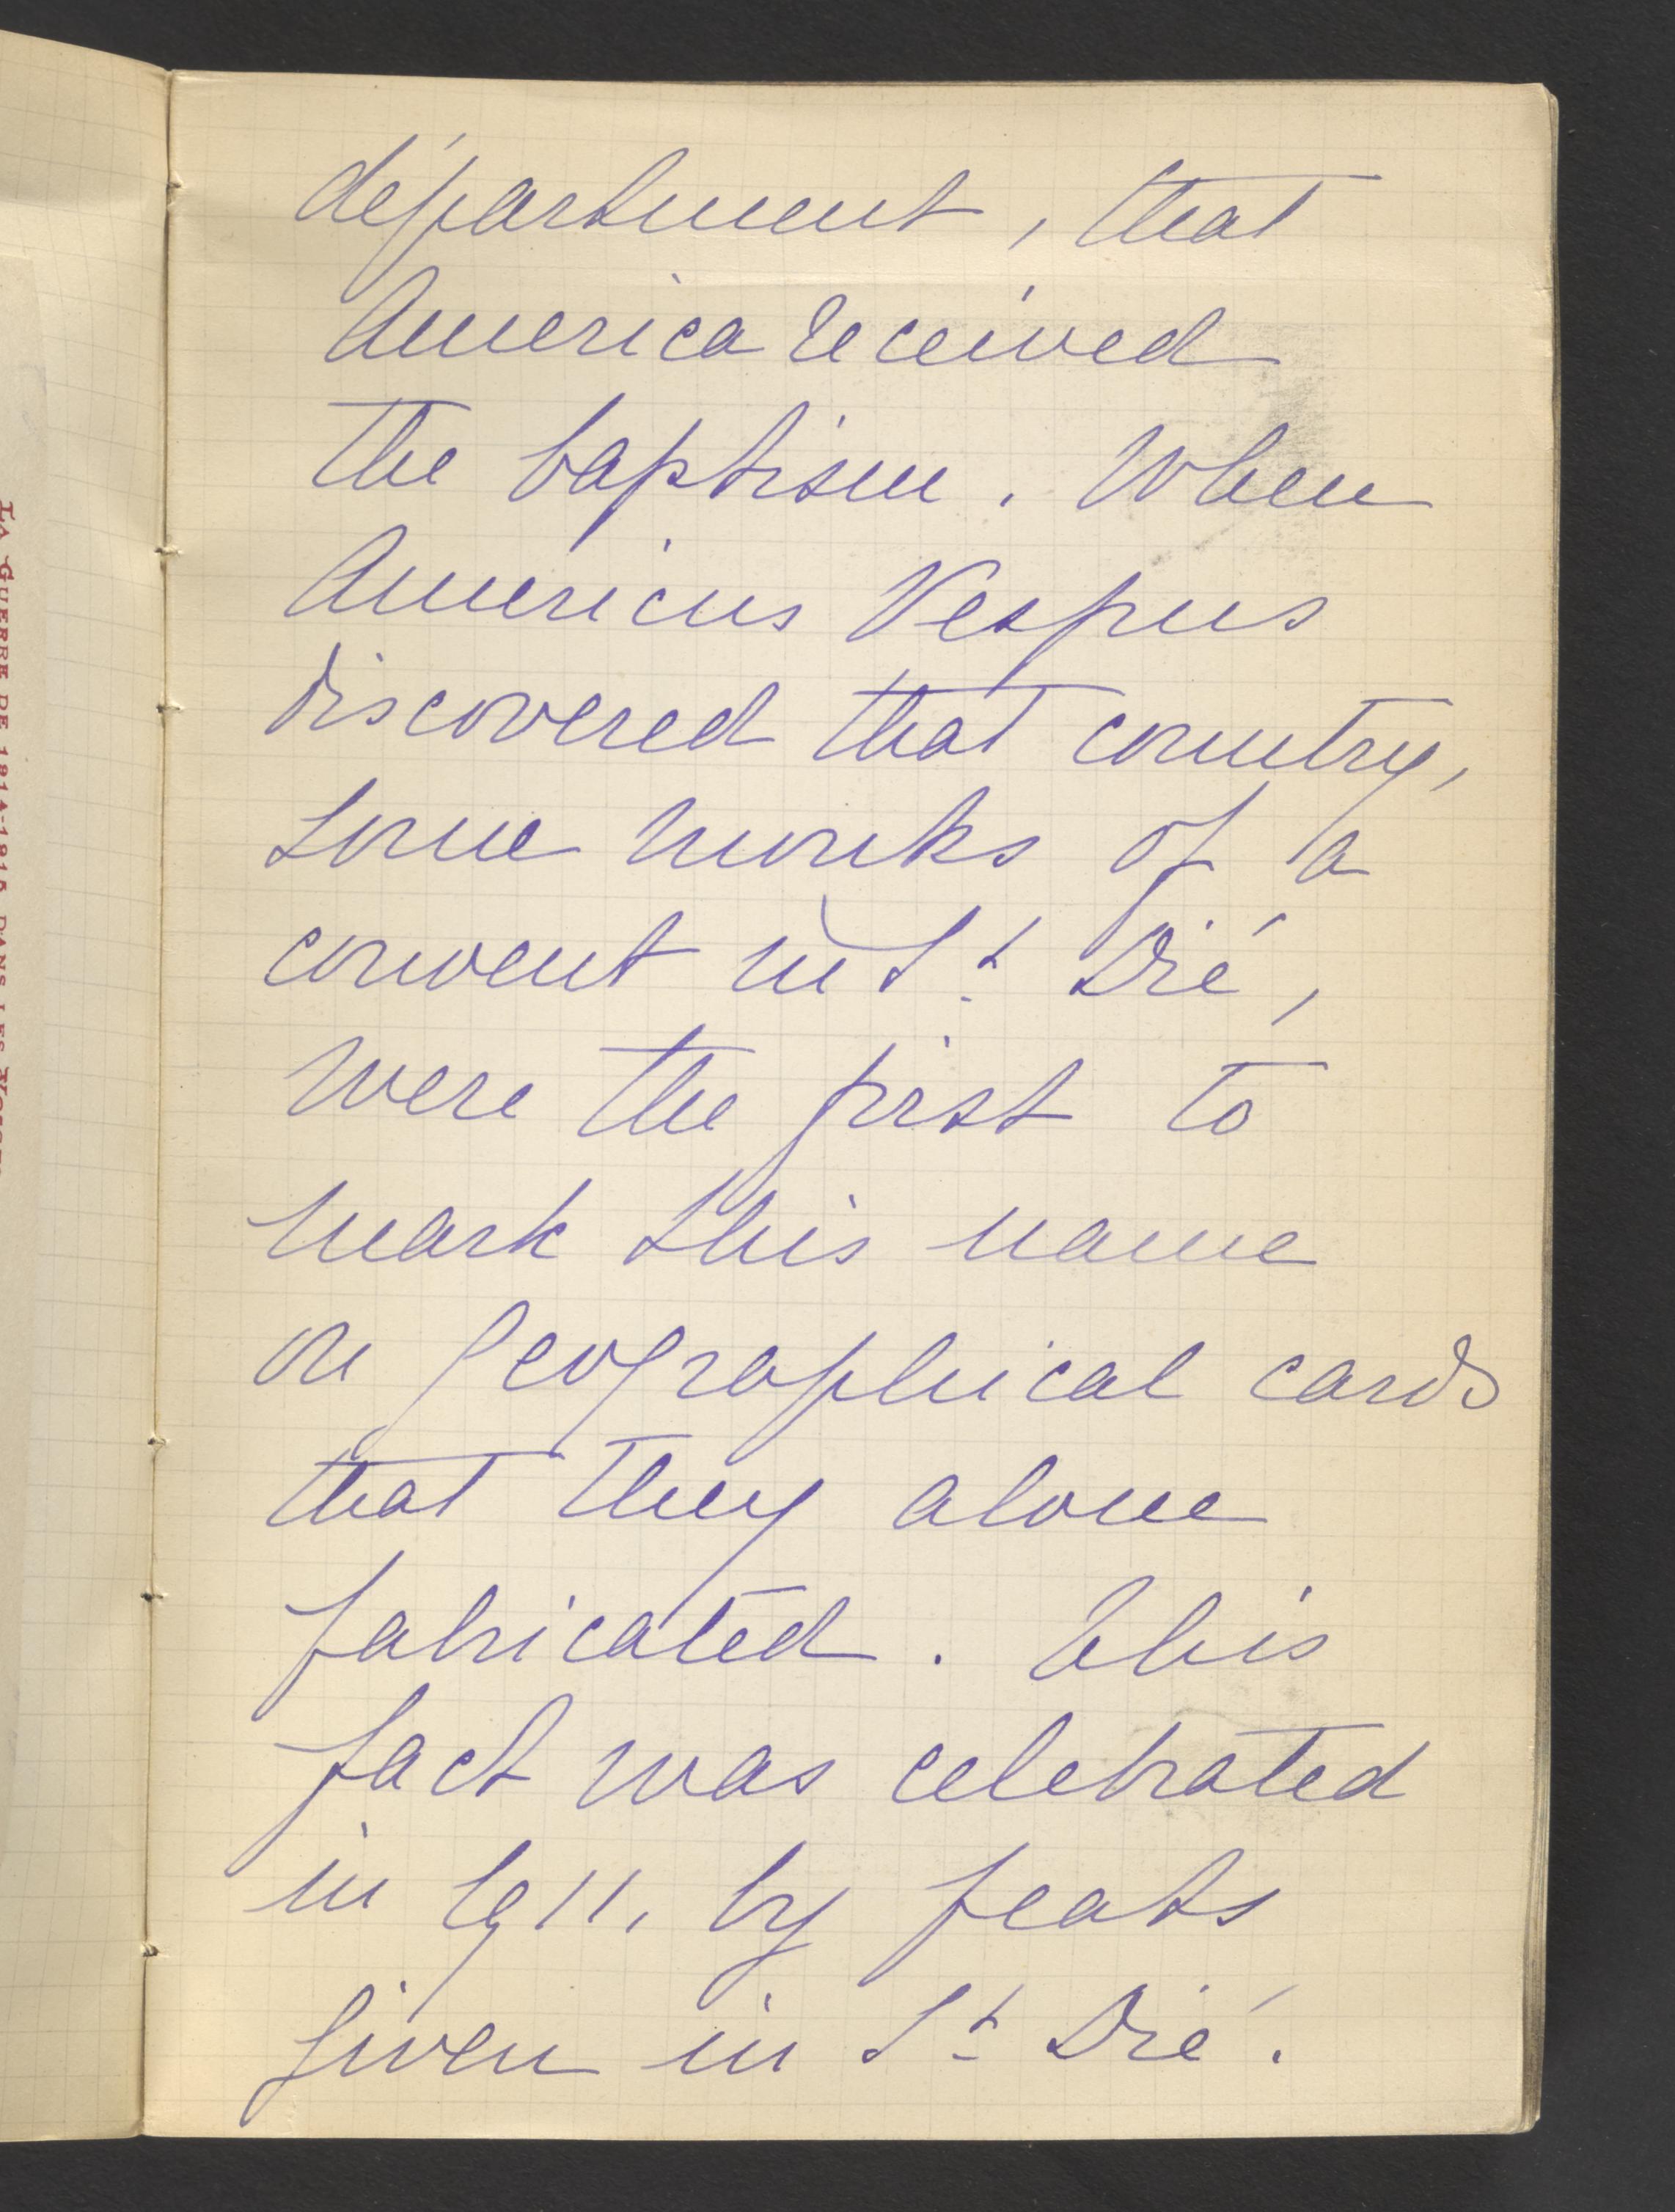 département, that
America received
the baptism. When
Americus Vespus
discovered that country,
some monks of a
convent in St Dié,
were the first to
mark this name
on geographical cards
that they alone
fabricated. This
fact was celebrated
in 1911, by feats
given in St Dié.
LA GUERRE DE 1914-1915 DANS LES VOSGES